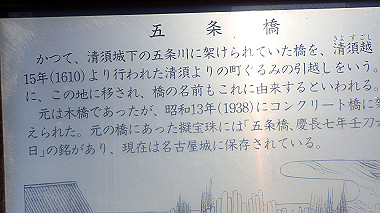 五条橋
かつて、清須城下の五条川に架けられていた橋を、清須越
きよすごし
15年(1610)より行われた清須よりの町ぐるみの引越しをいう。
に、この地に移され、橋の名前もこれに由来するといわれる。
元は木橋であったが、昭和13年(1938)にコンクリート橋に
えられた。元の橋にあった擬宝珠には「五条橋、慶長七年壬刀
日」の銘があり、現在は名古屋城に保存されている。